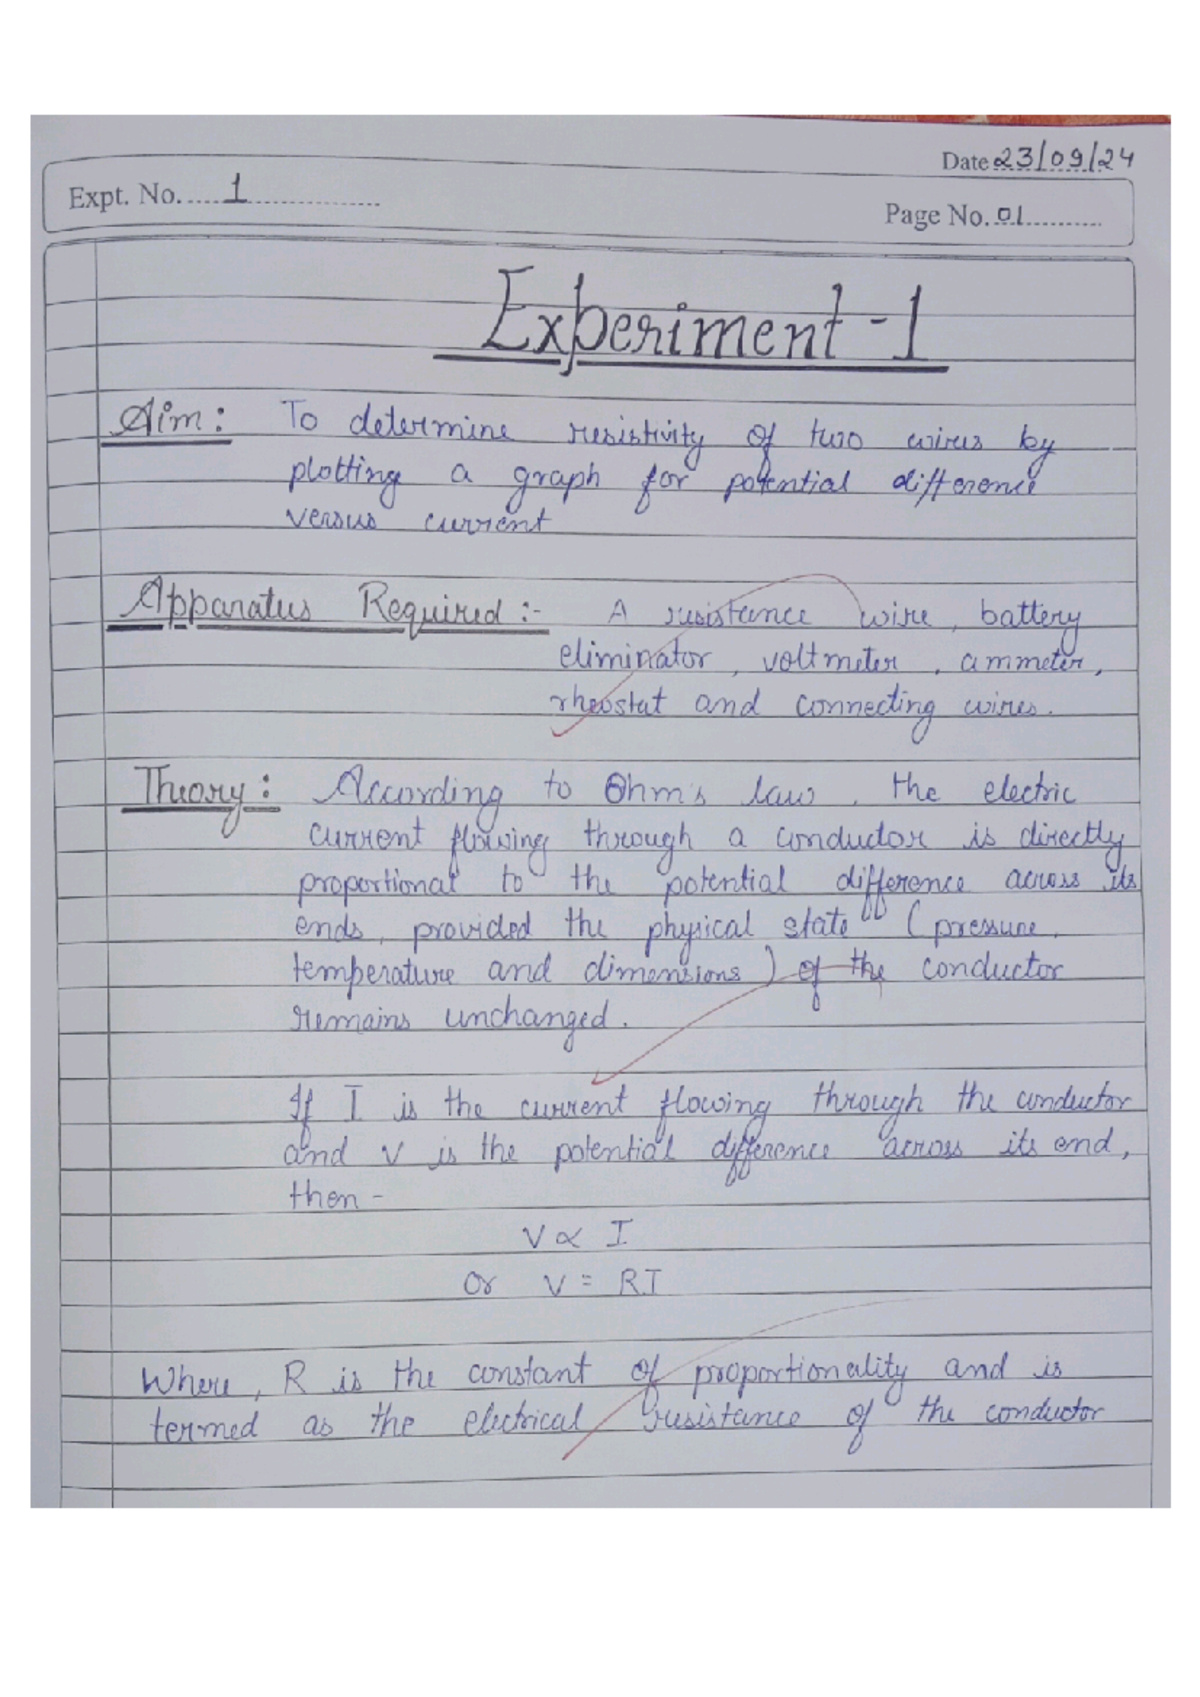 Date 23/09/24
Expt. No. 1
Page No. 01
Experiment - 1
Aim : To determine resistivity of two wires by
plotting a graph for potential difference
versus current
Apparatus Required :- A resistance wire, battery
eliminator, voltmeter, ammeter,
rheostat and connecting wires.
Theory : According to Ohm's law, the electric
current flowing through a conductor is directly
proportional to the potential difference across its
ends, provided the physical state (pressure,
temperature and dimensions) of the conductor
remains unchanged.
If I is the current flowing through the conductor
and V is the potential difference across its end,
then -
V ∝ I
or V = RI
Where, R is the constant of proportionality and is
termed as the electrical resistance of the conductor